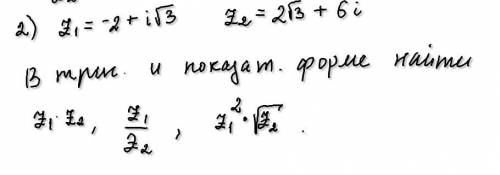 2) z₁ = -2 + i√3    z₂ = 2√3 + 6i
В триг. и показат. форме найти
z₁ · z₂, z₁/z₂, z₁² · √z₂.